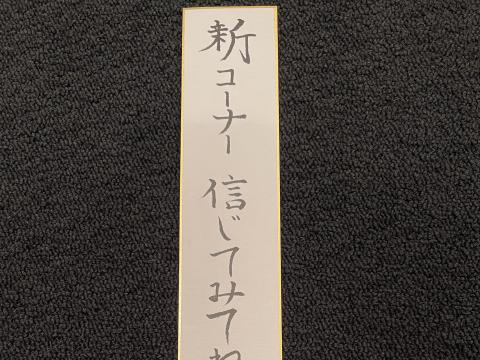 新コーナー 信じてみてね